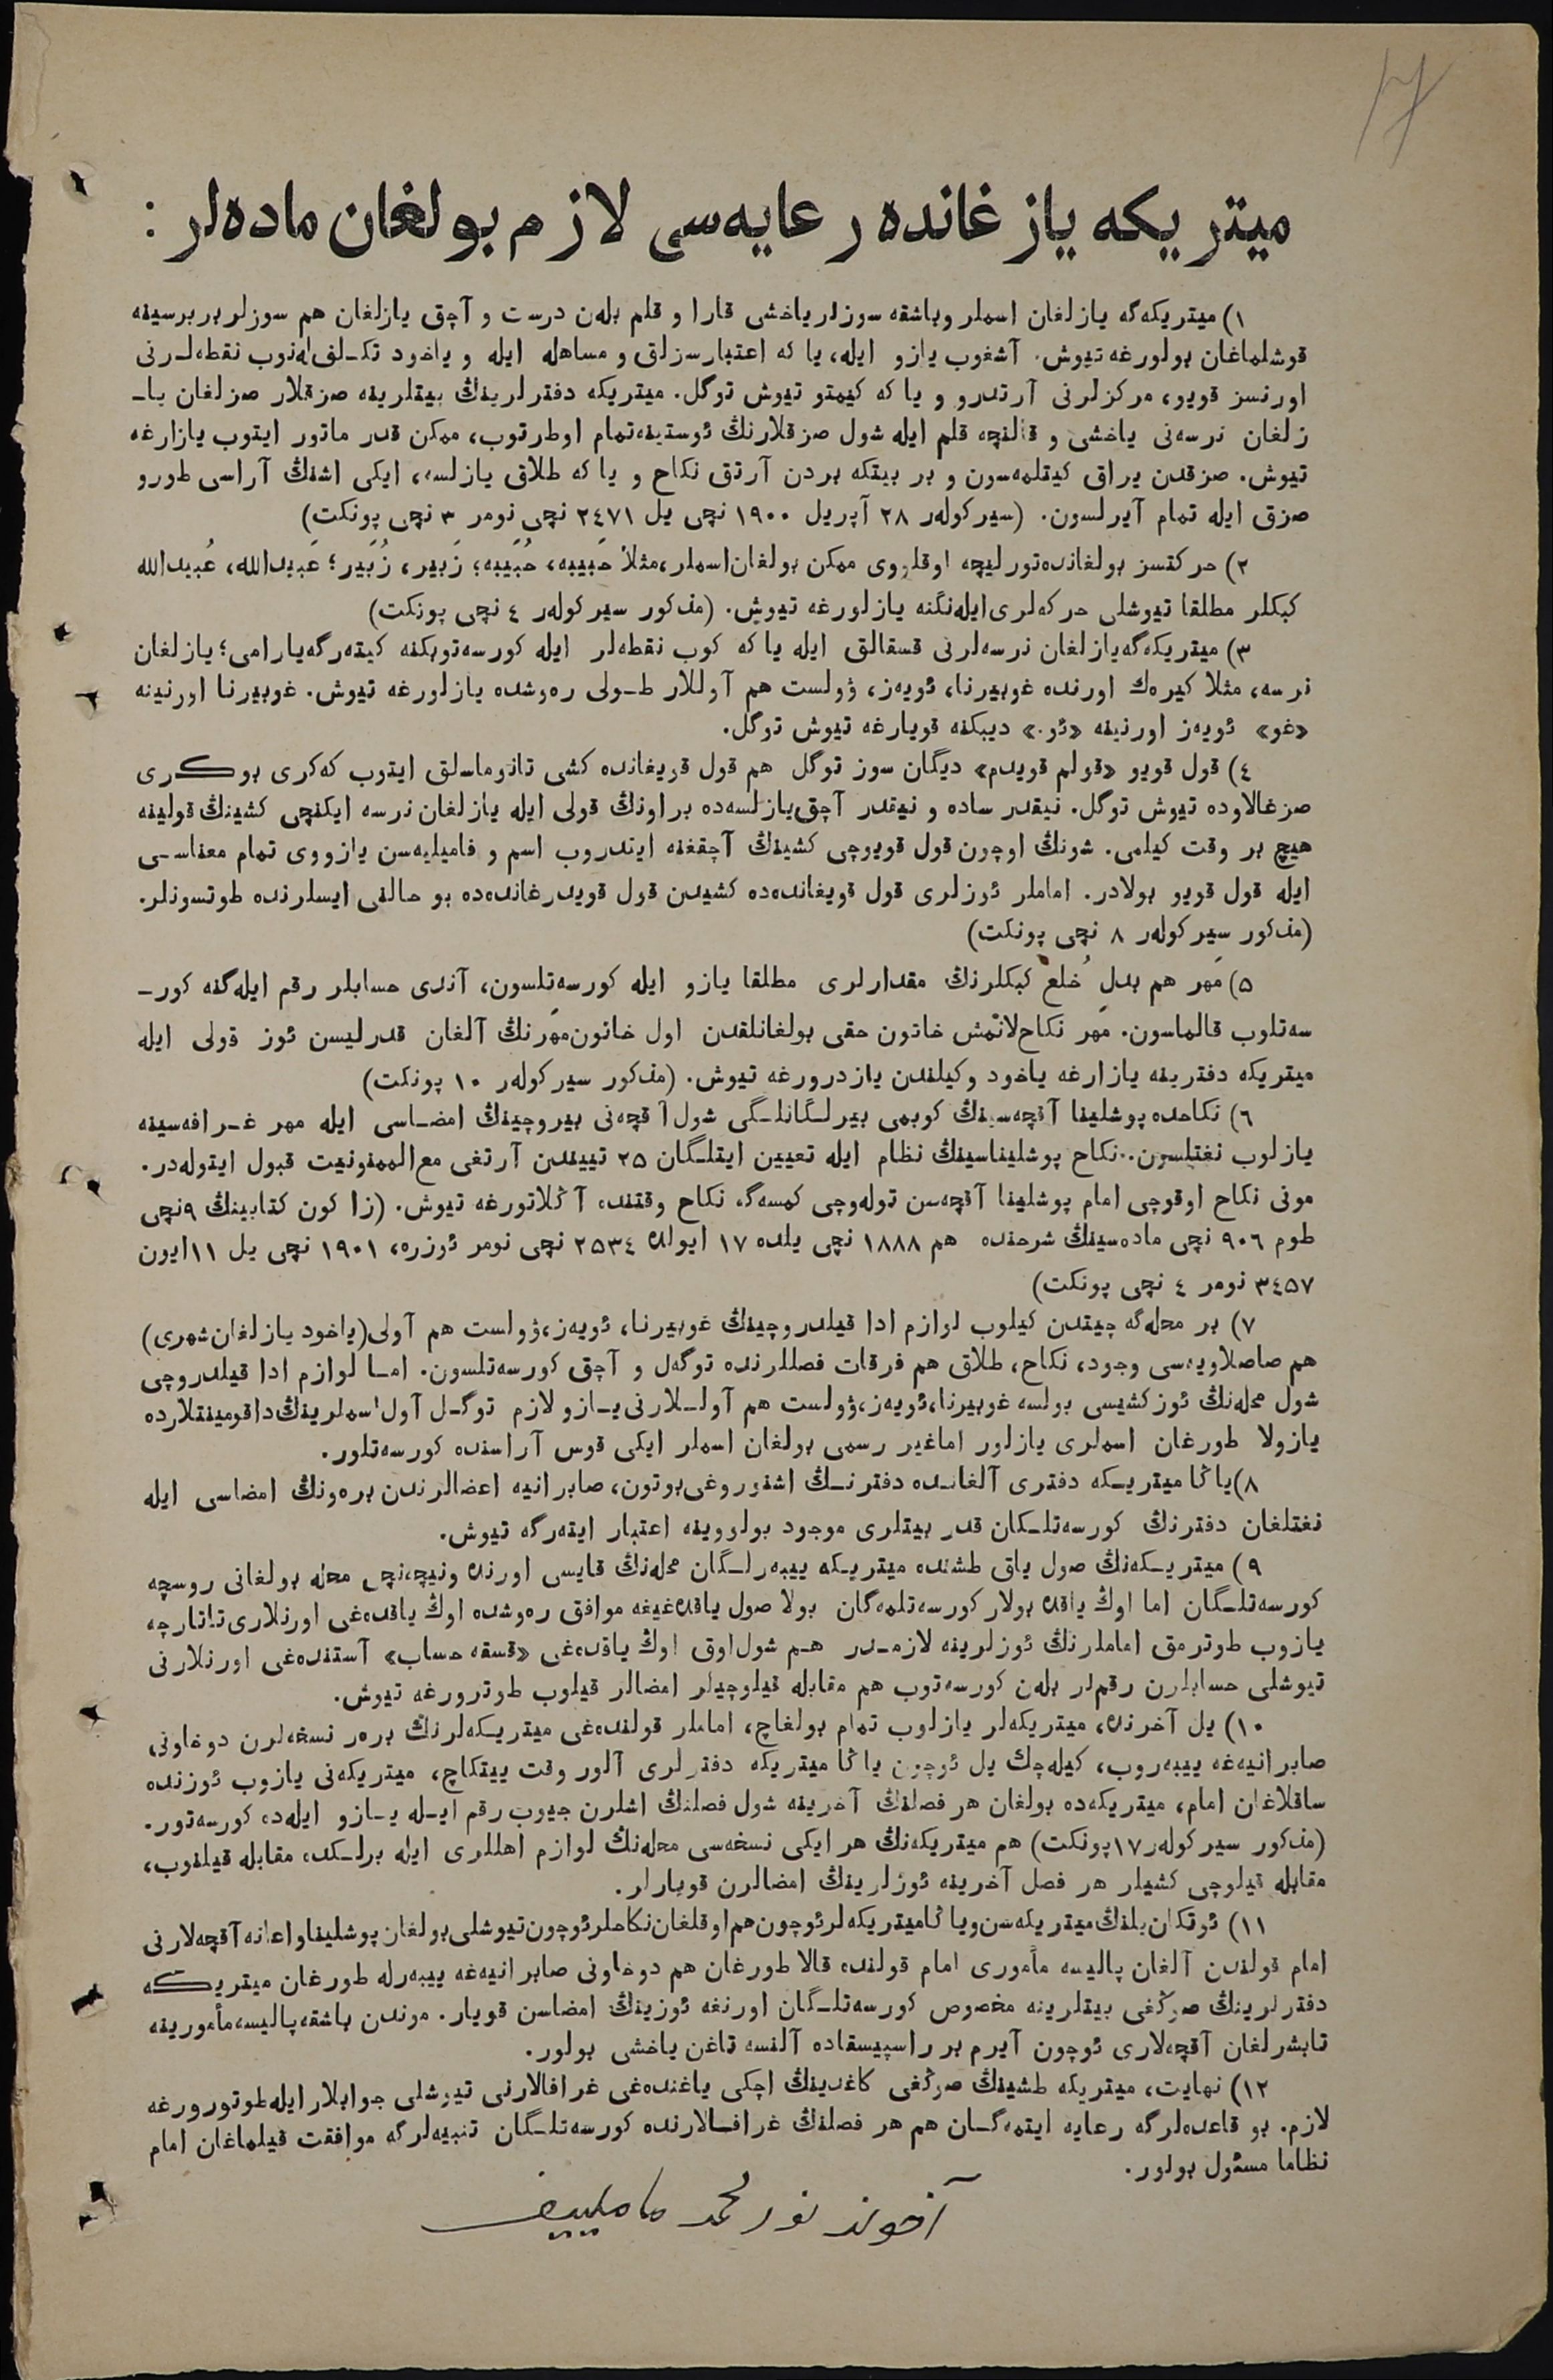 میتریکه یازغانده رعایه‌سی لازم بولغان ماده‌لر :
۱) میتریکه‌گه یازلغان اسملر وباشقه سوزلر یاخشی قارا و قلم بله‌ن درست و آچق یازلغان هم سوزلر بربرسینه
قوشلماغان بولورغه تیوش. آشغوب یازو ایله، یا که اعتبارسزلق و مساهله ایله و یاخود تکـلف له‌نوب نقطه‌لـرنی
اورنسز قویو، مرکزلرنی آرتدرو و یا که کیمتو تیوش توگل. میتریکه دفترلرینڭ بیتلرینه صزقلار صزلغان یا‌ـ
زلغان نرسه‌نی یاخشی و قالنچه قلم ایله شول صزقلارنڭ ئوستینه‌تمام اوطرتوب، ممکن قدر ماتور ایتوب یازارغه
تیوش. صزقدن یراق کیتلمه‌سون و بر بیتکه بردن آرتق نکاح و یا که طلاق یازلسه، ایکی اشنڭ آراسی طورو
صزق ایله تمام آیرلسون. (سیرکوله‌ر ۲۸ آپریل ۱۹۰۰ نچی یل ۲٤۷۱ نچی نومر ۳ نچی پونکت)
۲) حرکتسز بولغانده‌تورلیچه اوقلروی ممکن بولغان‌اسملر،مثلا حَبیبه، حُبَیبه؛ زَبیر، زُبَیر؛ عَبیدالله، عُبیدالله
کبکلر مطلقا تیوشلی حرکه‌لری‌ایله‌نگنه یازلورغه تیوش. (مذکور سیرکوله‌ر ٤ نچی پونکت)
۳) میتریکه‌گه‌یازلغان نرسه‌لرنی قسقالق ایله یا که کوب نقطه‌لر ایله کورسه‌توبکنه کیته‌رگه‌یارامی؛ یازلغان
نرسه، مثلا کیره‌ك اورنده غوبیرنا، ئویه‌ز، ۋولست هم آوللار طـولی ره‌وشده یازلورغه تیوش. غوبیرنا اورنینه
«غو» ئویه‌ز اورنینه «ئو.» دیبکنه قویارغه تیوش توگل.
٤) قول قویو «قولم قویدم» دیگان سوز توگل هم قول قویغانده کشی تانوماسلق ایتوب که‌کری بوکـری
صزغالاوده تیوش توگل. نیقدر ساده و نیقدر آچق‌یازلسه‌ده براونڭ قولی ایله یازلغان نرسه ایکنچی کشینڭ قولینه
هیچ بر وقت کیلمی. شونڭ اوچون قول قویوچی کشینڭ آچقغنه ایندروب اسم و فامیلیه‌سن یازووی تمام معناسـی
ایله قول قویو بولادر. اماملر ئوزلری قول قویغانده‌ده کشیدن قول قویدرغانده‌ده بو حالنی ایسلرنده طوتسونلر.
(مذکور سیرکوله‌ر ۸ نچی پونکت)
۵) مَهر هم بدلِ خُلع کبکلرنڭ مقدارلری مطلقا یازو ایله کورسه‌تلسون، آندی حسابلر رقم ایله‌گنه کورـ
سه‌تلوب قالماسون. مَهر نکاح‌لانمش خاتون حقی بولغانلقدن اول خاتون‌مهرنڭ آلغان قدرلیسن ئوز قولی ایله
میتریکه دفترینه یازارغه یاخود وکیلندن یازدرورغه تیوش. (مذکور سیرکوله‌ر ۱۰ پونکت)
٦) نکاحده پوشلینا آقچه‌سینڭ کوبمی بیرلـگانلـگی شول آقچه‌نی بیروچینڭ امضـاسی ایله مهر غـرافه‌سینه
یازلوب نغتلسون. نکاح پوشلیناسینڭ نظام ایله تعیین ایتلـگان ۲۵ تییندن آرتغی مع‌الممنونیت قبول ایتوله‌در.
مونی نکاح اوقوچی امام پوشلینا آقچه‌سن توله‌وچی کمسه‌گه نکاح وقتنده آڭلاتورغه تیوش. (زاکون کتابینڭ ۹نچی
طوم ۹۰٦ نچی ماده‌سینڭ شرحنده هم ۱۸۸۸ نچی یلده ۱۷ ایولده ۲۵۳٤ نچی نومر ئوزره، ۱۹۰۱ نچی یل ۱۱ایون
۳٤۵۷ نومر ٤ نچی پونکت)
۷) بر محله‌گه چیتدن کیلوب لوازم ادا قیلدروچینڭ غوبیرنا، ئویه‌ز،ۋولست هم آولی(یاخود یازلغان‌شهری)
هم صاصلاویه‌سی وجود، نکاح، طلاق هم فرقات فصللرنده توگه‌ل و آچق کورسه‌تلسون. امـا لوازم ادا قیلدروچی
شول محله‌نڭ ئوزکشیسی بولسه غوبیرنا،ئویه‌ز،ۋولست هم آولـلارنی‌یـازو لازم توگـل آول اسملرینڭ داقومینتلارده
یازولا طورغان اسملری یازلور اماغیر رسمی بولغان اسملر ایکی قوس آراسنده کورسه‌تلور.
۸)یاڭا میتریـکه دفتری آلغانـده دفترنـڭ اشنوروغی‌بوتون، صابرانیه اعضالرندن بره‌ونڭ امضاسی ایله
نغتلغان دفترنڭ کورسه‌تلـکان قدر بیتلری موجود بولووینه اعتبار ایته‌رگه تیوش.
۹) میتریـکه‌نڭ صول یاق طشنده میتریـکه ییبه‌رلـگان محله‌نڭ قایسی اورنده ونیچه‌نچی محله بولغانی روسچه
کورسه‌تلـگان اما اوڭ یاقده بولار کورسه‌تلمه‌گان بولا صول یاقده‌غیغه موافق ره‌وشده اوڭ یاقده‌غی اورنلاری‌تاتارچه
یازوب طوترمق اماملرنڭ ئوزلرینه لازمـدر هـم شول‌اوق اوڭ یاقده‌غی «قسقه حساب» آستنده‌غی اورنلارنی
تیوشلی حسابلرن رقم‌لر بله‌ن کورسه‌توب هم مقابله قیلوچیلر امضالر قیلوب طوترورغه تیوش.
۱۰) یل آخرنده، میتریکه‌لر یازلوب تمام بولغاچ، اماملر قولنده‌غی میتریـکه‌لرنڭ بره‌ر نسخه‌لرن دوخاونی
صابرانیه‌غه ییبه‌روب، کیله‌چك یل ئوچون یاڭا میتریکه دفترلری آلور وقت ییتکاچ، میتریکه‌نی یازوب ئوزنده
ساقلاغان امام، میتریکه‌ده بولغان هر فصلنڭ آخرینه شول فصلنڭ اشلرن جیوب رقم ایـله یـازو ایله‌ده کورسه‌تور.
(مذکور سیرکوله‌ر ۱۷پونکت) هم میتریکه‌نڭ هر ایکی نسخه‌سی محله‌نڭ لوازم اهللری ایله برلـکده مقابله قیلنوب،
مقابله قیلوچی کشیلر هر فصل آخرینه ئوزلرینڭ امضالرن قویارلر.
۱۱) ئوتکان‌یلنڭ‌میتریکه‌سن‌ویاڭامیتریکه‌لرئوچون‌هم‌اوقلغان‌نکاحلرئوچون‌تیوشلی‌بولغان پوشلیناواعانه‌آقچه‌لارنی
امام قولندن آلغان پالیسه مأموری امام قولنده قالا طورغان هم دوخاونی صابرانیه‌غه ییبه‌رله طورغان میتریـکه
دفترلرینڭ صوڭغی بیتلرینه مخصوص کورسه‌تلـگان اورنغه ئوزینڭ امضاسن قویار. موندن باشقه‌پالیسه‌مأمورینه
تابشرلغان آقچه‌لاری ئوچون آیرم بر راسپیسقاده آلنسه تاغن یاخشی بولور.
۱۲) نهایت، میتریکه طشینڭ صوڭغی کاغدینڭ اچکی یاغنده‌غی غرافالارنی تیوشلی جوابلارایله‌طوتورورغه
لازم. بو قاعده‌لرگه رعایه ایتمه‌گـان هم هر فصلنڭ غرافـالارنده کورسه‌تلـگان تنبیه‌لرگه موافقت قیلماغان امام
نظاما مسئول بولور.
آخوند نورمحمد ماملییف